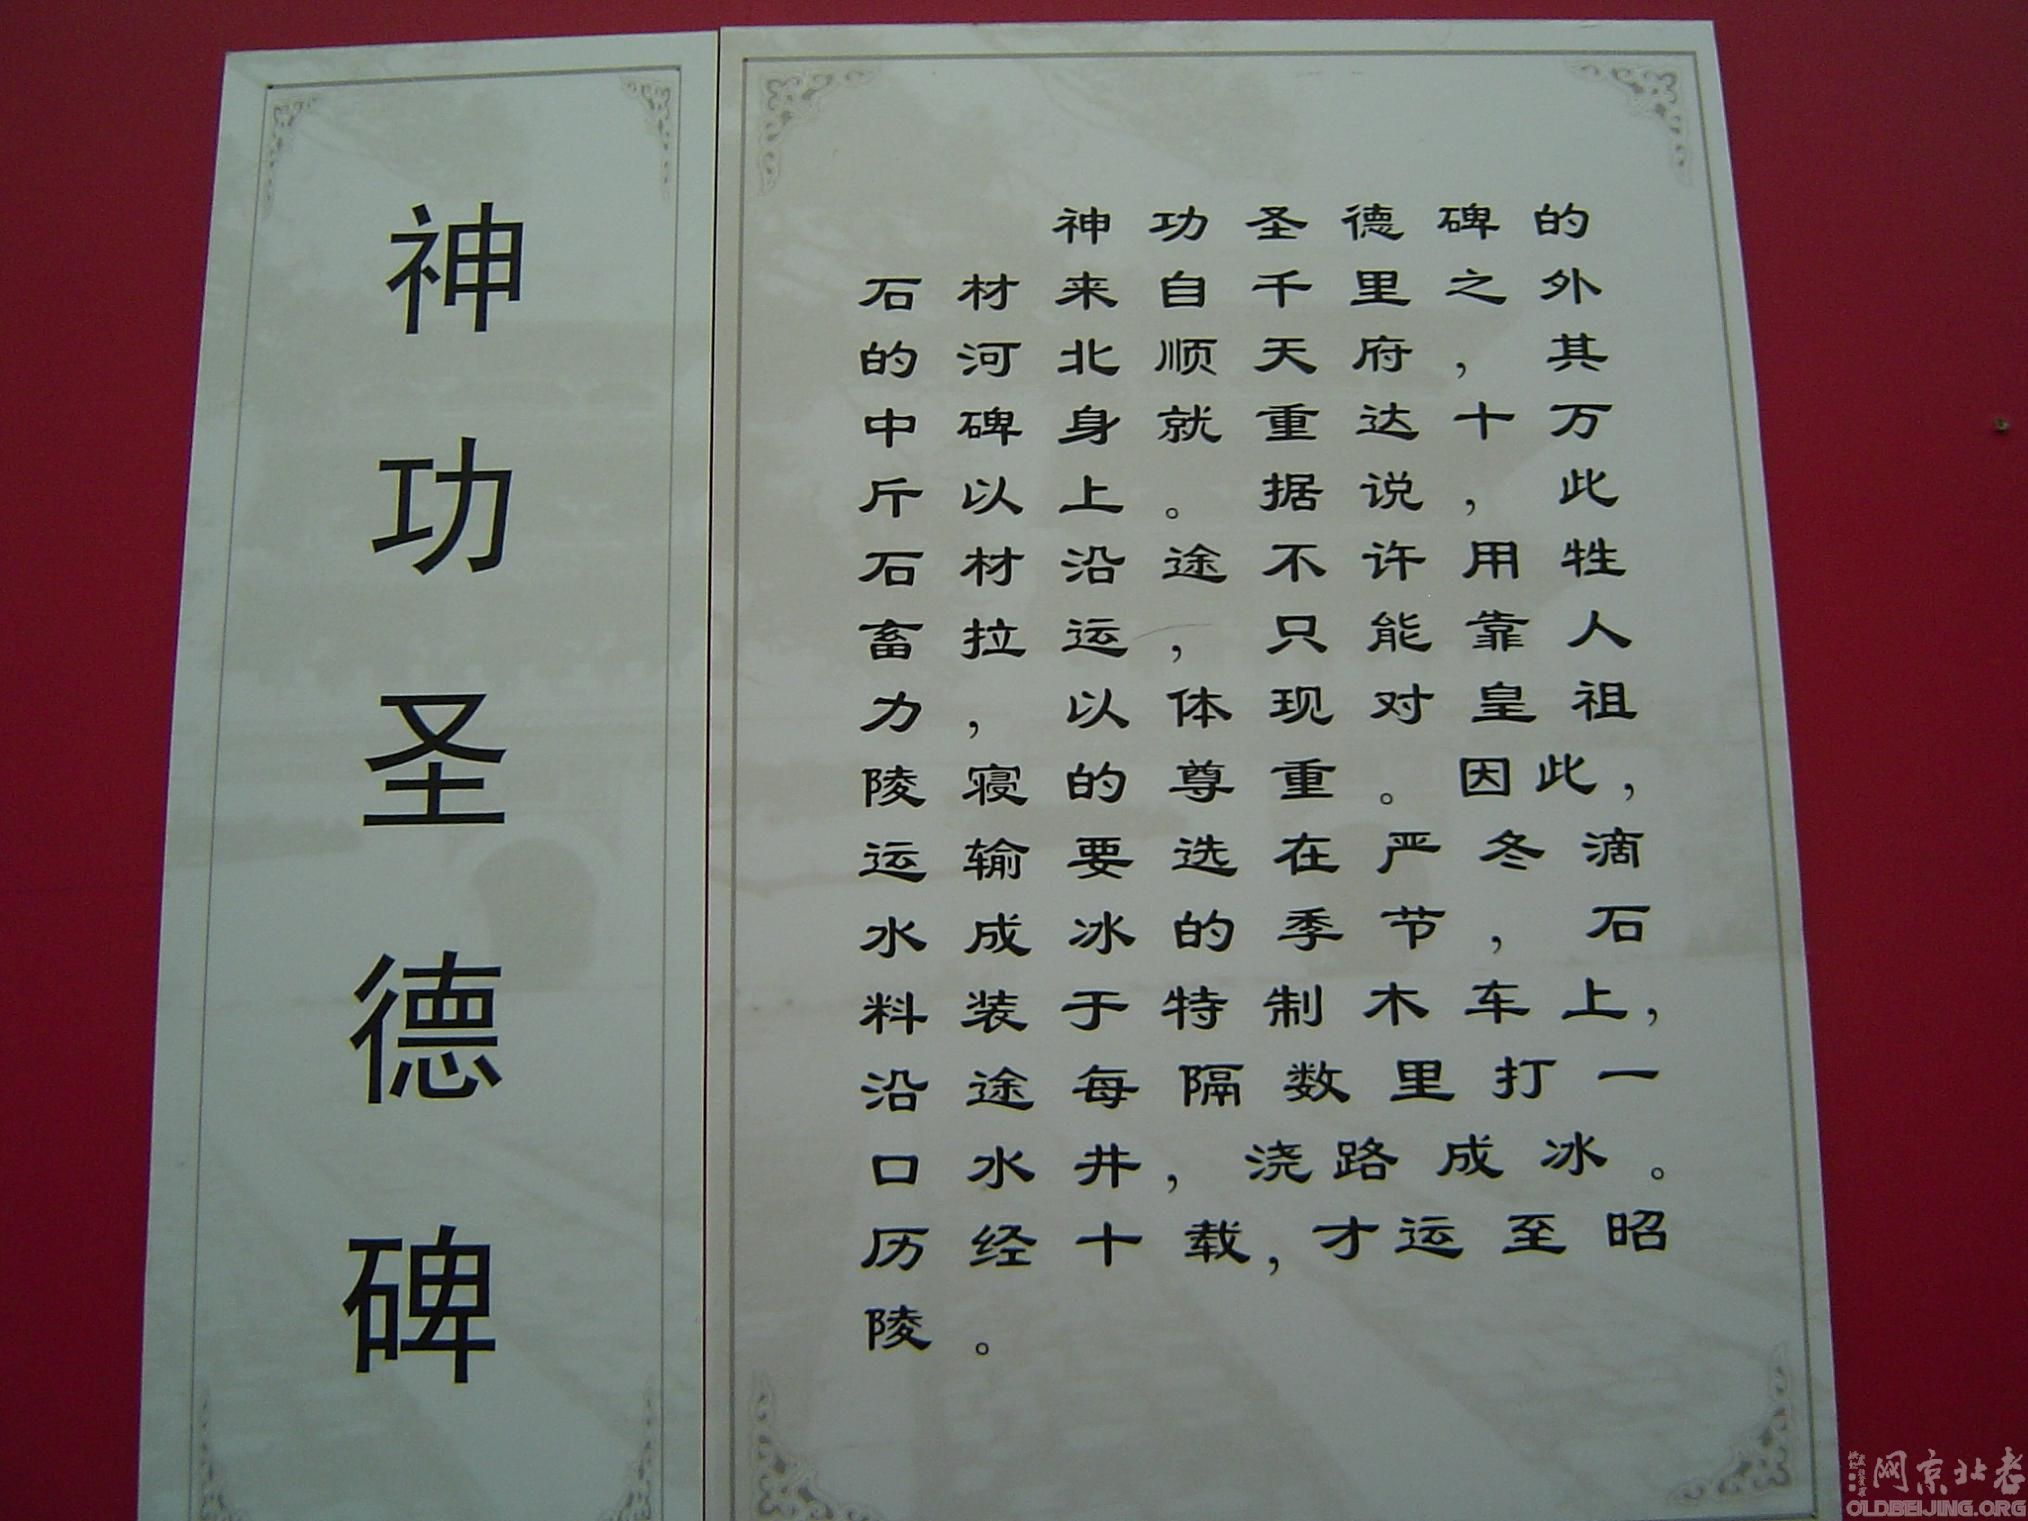 神功圣德碑
神功圣德碑的
石材来自千里之外
的河北顺天府，其
中碑身就重达十万
斤以上。据说，此
石材沿途不许用牲
畜拉运，只能靠人
力，以体现对皇祖
陵寝的尊重。因此，
运输要选在严冬滴
水成冰的季节，石
料装于特制木车上，
沿途每隔数里打一
口水井，浇路成冰。
历经十载，才运至昭
陵。
老北京网
OLDBEIJING.ORG